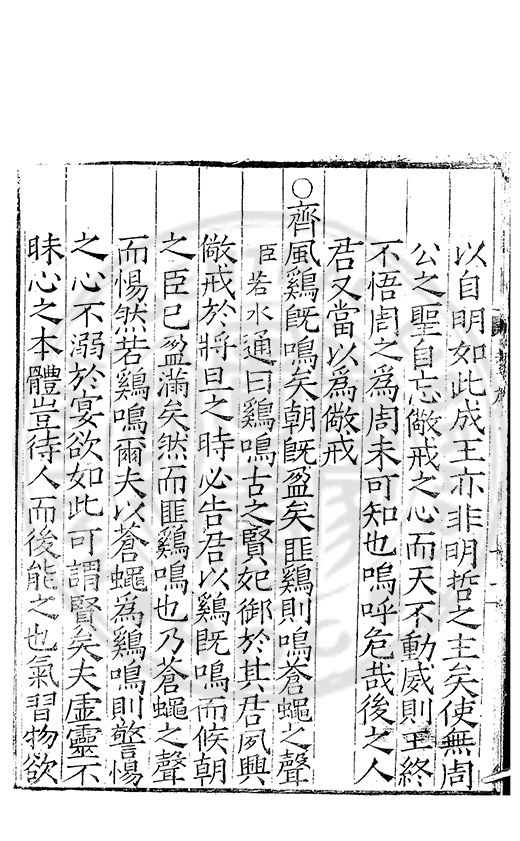 以自明如此成王亦非明哲之主矣使無周
公之聖自忘儆戒之心而天不動威則王終
不悟周之為周未可知也嗚呼危哉後之人
君又當以為儆戒
○齊風鷄旣鳴矣朝旣盈矣匪鷄則鳴蒼蠅之聲
臣若水通曰鷄鳴古之賢妃御於其君夙興
儆戒於將旦之時必告君以鷄旣鳴而候朝
之臣已盈滿矣然而匪鷄鳴也乃蒼蠅之聲
而惕然若鷄鳴爾夫以蒼蠅為鷄鳴則警惕
之心不溺於宴欲如此可謂賢矣夫虛靈不
昧心之本體豈待人而後能之也氣習物欲